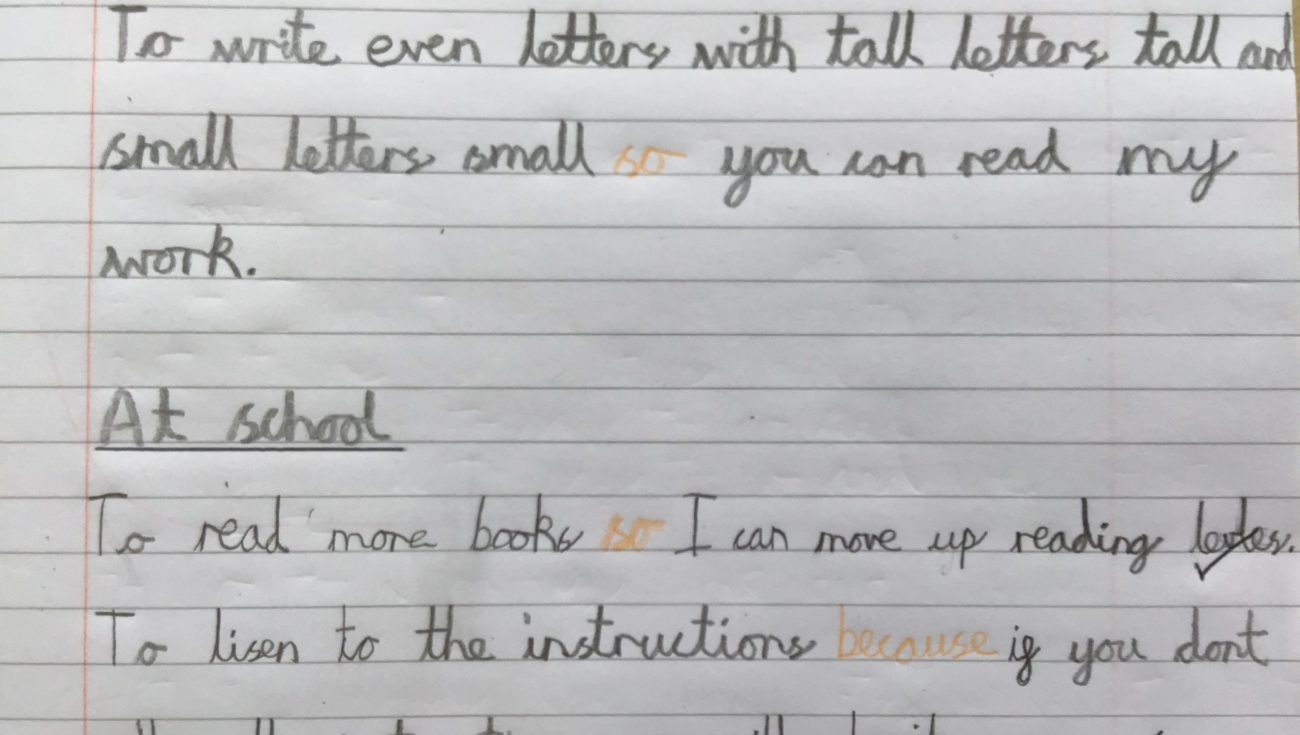 To write even letters with tall letters tall and
small letters small so you can read my
work.
At school
To read more books so I can move up reading
To lisen to the instructions because if you dont